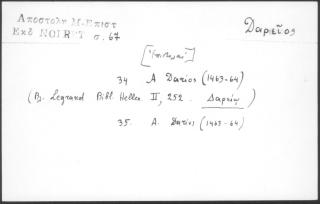 Αποστολη Μ-Επιστ
Δαρεῖος
Εκδ NOIRET σ. 67
[Ἐπιστολαί]
34 A Darios (1463-64)
(Βλ. Legrand Bibl Hellen II, 252. Δαρείῳ)
35. A. Darios (1463-64)